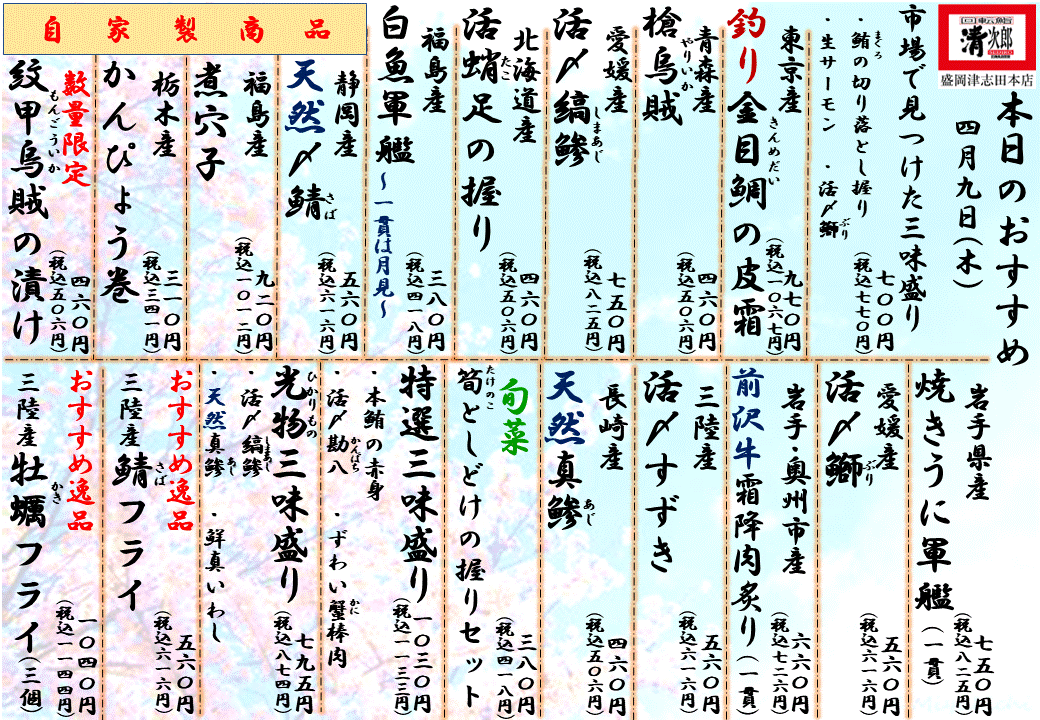 回転鮨
清次郎
盛岡津志田本店
本日のおすすめ
四月九日(木)
市場で見つけた三味盛り
・鮪の切り落とし握り
まぐろ
・生サーモン ・活〆鰤
ぶり
七〇〇円
(税込七七〇円)
東京産
釣り金目鯛の皮霜
きんめだい
九七〇円
(税込一〇六七円)
青森産
槍烏賊
やりいか
四六〇円
(税込五〇六円)
愛媛産
活〆縞鯵
しまあじ
七五〇円
(税込八二五円)
北海道産
活蛸足の握り
たこ
四六〇円
(税込五〇六円)
福島産
白魚軍艦
~一貫は月見~
三八〇円
(税込四一八円)
自家製商品
静岡産
天然〆鯖
さば
五六〇円
(税込六一六円)
福島産
煮穴子
九二〇円
(税込一〇一二円)
栃木産
かんぴょう巻
三一〇円
(税込三四一円)
数量限定
紋甲烏賊の漬け
もんこういか
四六〇円
(税込五〇六円)
岩手県産
焼きうに軍艦
(一貫)
七五〇円
(税込八二五円)
愛媛産
活〆鰤
ぶり
五六〇円
(税込六一六円)
岩手・奥州市産
前沢牛霜降肉炙り
(一貫)
六六〇円
(税込七二六円)
三陸産
活〆すずき
五六〇円
(税込六一六円)
長崎産
天然真鯵
あじ
四六〇円
(税込五〇六円)
旬菜
筍としどけの握りセット
たけのこ
三八〇円
(税込四一八円)
特選三味盛り
・本鮪の赤身
・活〆勘八 ・ずわい蟹棒肉
かんぱち
かに
一〇三〇円
(税込一一三三円)
光物三味盛り
ひかりもの
・活〆縞鯵
しまあじ
・天然真鯵 ・鮮真いわし
あじ
七九五円
(税込八七四円)
おすすめ逸品
三陸産鯖フライ
さば
五六〇円
(税込六一六円)
おすすめ逸品
三陸産牡蠣フライ(三個)
かき
一〇四〇円
(税込一一四四円)